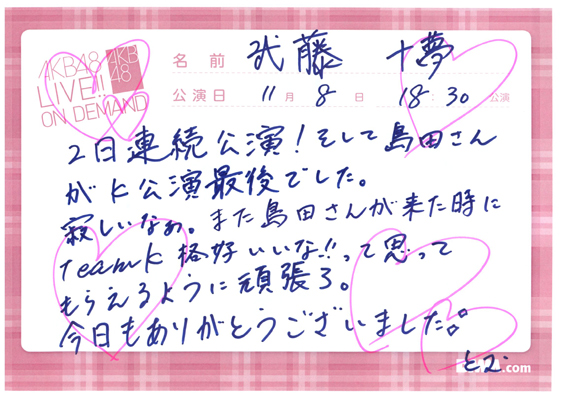 AKB48
LIVE!!
ON DEMAND
AKB
48
名前 武藤 十夢
公演日 11月8日 18:30公演
2日連続公演！そして島田さん
がK公演最後でした。
寂しいなぁ。また島田さんが来た時に
teamK 格好いいな!!って思って
もらえるように頑張る。
今日もありがとうございました。
とむ
.com